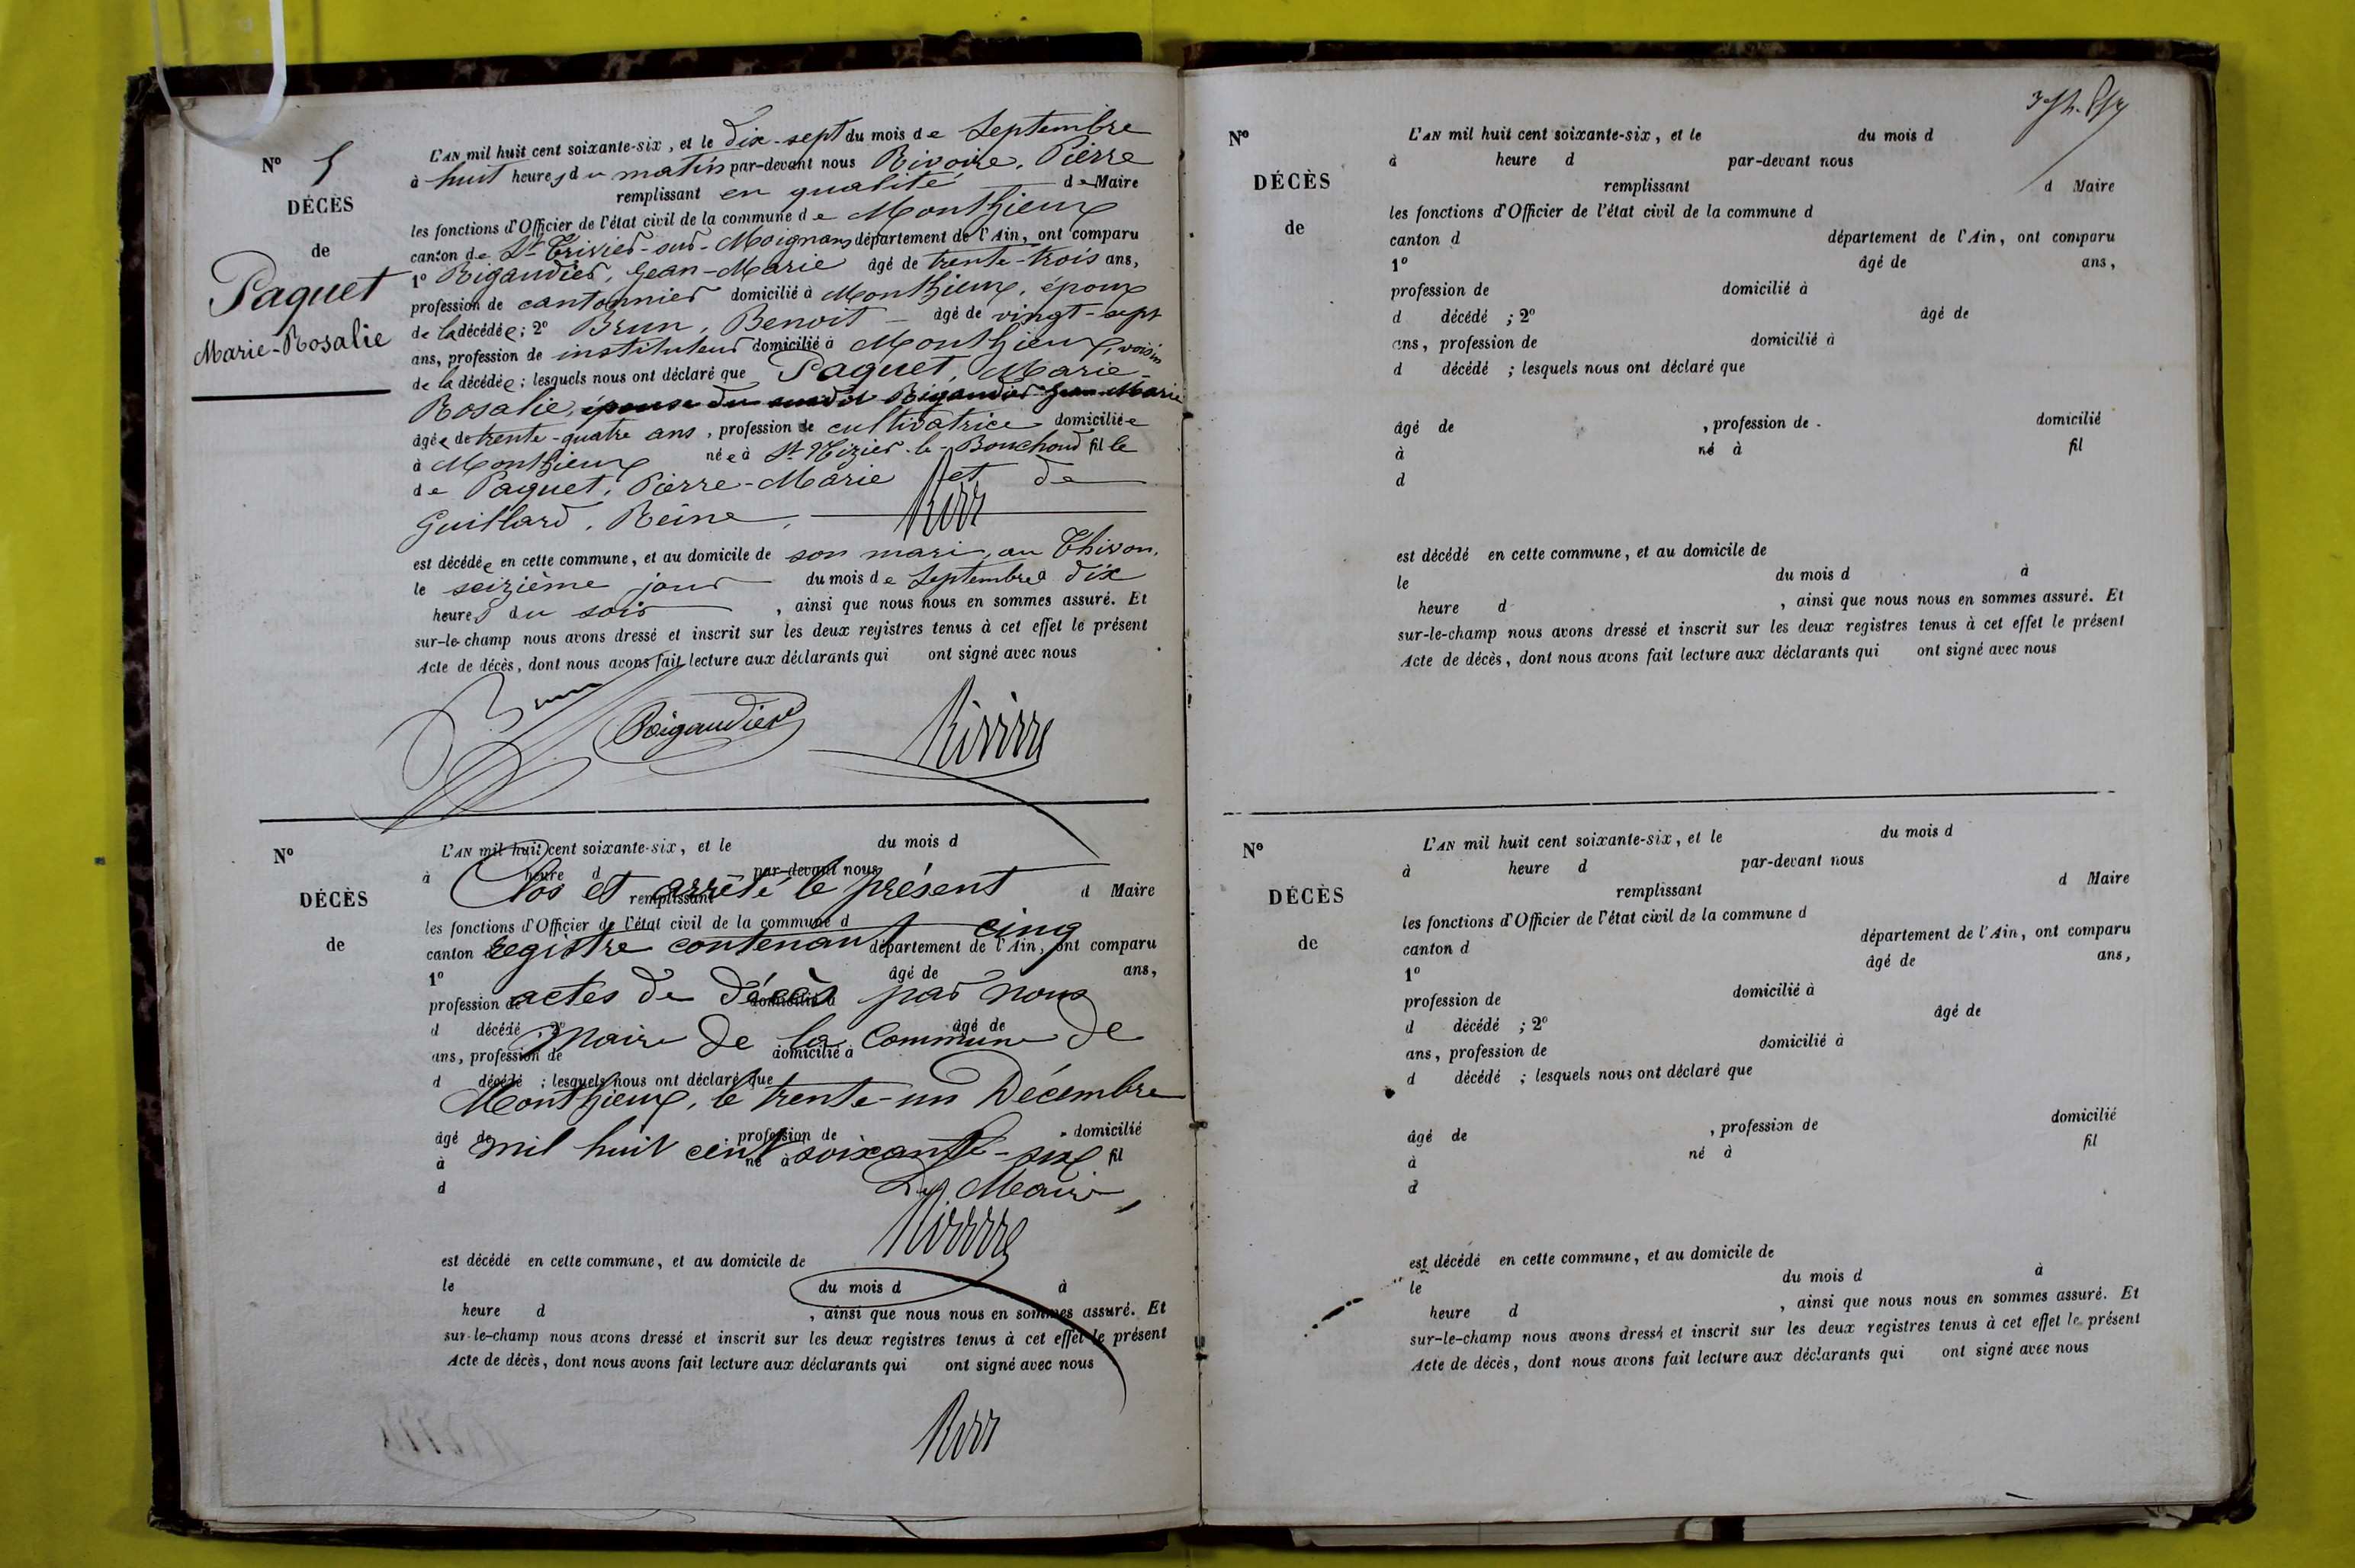 N° 5
DÉCÈS
de
Paquet
Marie-Rosalie
L'AN mil huit cent soixante-six, et le dix-sept du mois de Septembre
à huit heures du matin par-devant nous Rivoire, Pierre
remplissant en qualité de Maire
les fonctions d'Officier de l'état civil de la commune de Monthieux
canton de St Trivier-sur-Moignans département de l'Ain, ont comparu
1° Rigaudier, Jean-Marie âgé de trente-trois ans,
profession de cantonnier domicilié à Monthieux, époux
de la décédée; 2° Brun, Benoit âgé de vingt-sept
ans, profession de instituteur domicilié à Monthieux, voisin
de la décédée; lesquels nous ont déclaré que Paquet, Marie-
Rosalie, épouse du susdit Rigaudier Jean-Marie
âgée de trente-quatre ans, profession de cultivatrice domiciliée
à Monthieux née à St Nizier-le-Bouchoud fille
de Paquet, Pierre-Marie et de
Guillard, Reine,
est décédée en cette commune, et au domicile de son mari, au Thivon,
le seizième jour du mois de Septembre à dix
heures du soir, ainsi que nous nous en sommes assuré. Et
sur-le-champ nous avons dressé et inscrit sur les deux registres tenus à cet effet le présent
Acte de décès, dont nous avons fait lecture aux déclarants qui ont signé avec nous
Brun Rigaudier Rivoire
N°
DÉCÈS
de
L'AN mil huit cent soixante-six, et le du mois d
à heure d par-devant nous
Clos et arrêté le présent
remplissant d Maire
les fonctions d'Officier de l'état civil de la commune d
registre contenant cinq
canton d département de l'Ain, ont comparu
1° âgé de ans,
actes de décès par nous
profession de domicilié à
d décédé ; 2° âgé de
Maire de la Commune de
ans, profession de domicilié à
d décédé ; lesquels nous ont déclaré que
Monthieux, le trente-un Décembre
âgé de , profession de domicilié
mil huit cent soixante-six
à né à fil
d
Le Maire,
Rivoire
est décédé en cette commune, et au domicile de
le du mois d à
heure d , ainsi que nous nous en sommes assuré. Et
sur-le-champ nous avons dressé et inscrit sur les deux registres tenus à cet effet le présent
Acte de décès, dont nous avons fait lecture aux déclarants qui ont signé avec nous
N°
DÉCÈS
de
L'AN mil huit cent soixante-six, et le du mois d
à heure d par-devant nous
remplissant d Maire
les fonctions d'Officier de l'état civil de la commune d
canton d département de l'Ain, ont comparu
1° âgé de ans,
profession de domicilié à
d décédé ; 2° âgé de
ans, profession de domicilié à
d décédé ; lesquels nous ont déclaré que
âgé de , profession de domicilié
à né à fil
d
est décédé en cette commune, et au domicile de
le du mois d à
heure d , ainsi que nous nous en sommes assuré. Et
sur-le-champ nous avons dressé et inscrit sur les deux registres tenus à cet effet le présent
Acte de décès, dont nous avons fait lecture aux déclarants qui ont signé avec nous
N°
DÉCÈS
de
L'AN mil huit cent soixante-six, et le du mois d
à heure d par-devant nous
remplissant d Maire
les fonctions d'Officier de l'état civil de la commune d
canton d département de l'Ain, ont comparu
1° âgé de ans,
profession de domicilié à
d décédé ; 2° âgé de
ans, profession de domicilié à
d décédé ; lesquels nous ont déclaré que
âgé de , profession de domicilié
à né à fil
d
est décédé en cette commune, et au domicile de
le du mois d à
heure d , ainsi que nous nous en sommes assuré. Et
sur-le-champ nous avons dressé et inscrit sur les deux registres tenus à cet effet le présent
Acte de décès, dont nous avons fait lecture aux déclarants qui ont signé avec nous